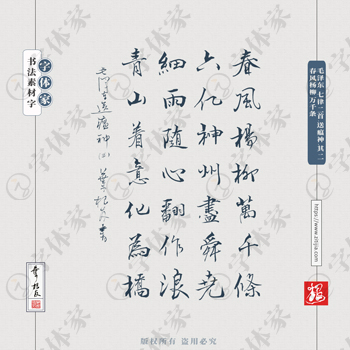 毛泽东 七律二首 送瘟神 其二
春风杨柳万千条
春風楊柳萬千條
六亿神州盡舜堯
細雨隨心翻作浪
青山着意化為橋
送瘟神(二)
字体家
书法素材字
版权所有 盗用必究